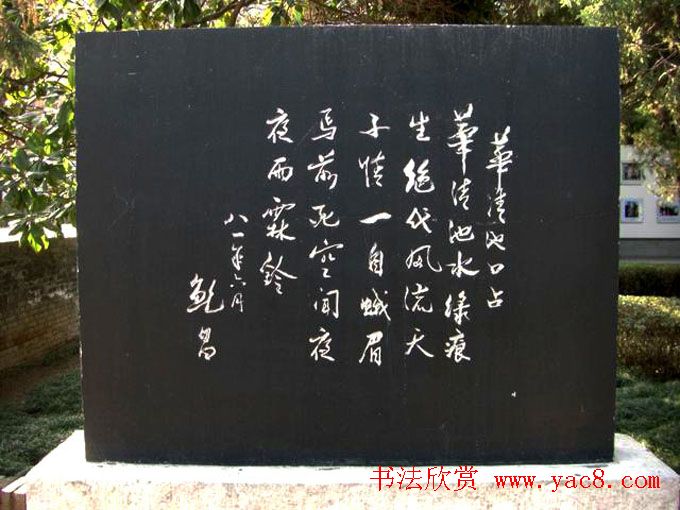 華清池口占
華清池水綠痕
生絕代風流天
子情一自蛾眉
馬前死空聞夜
夜雨霖鈴
八一年六月
鮑昌
书法欣赏 www.yac8.com